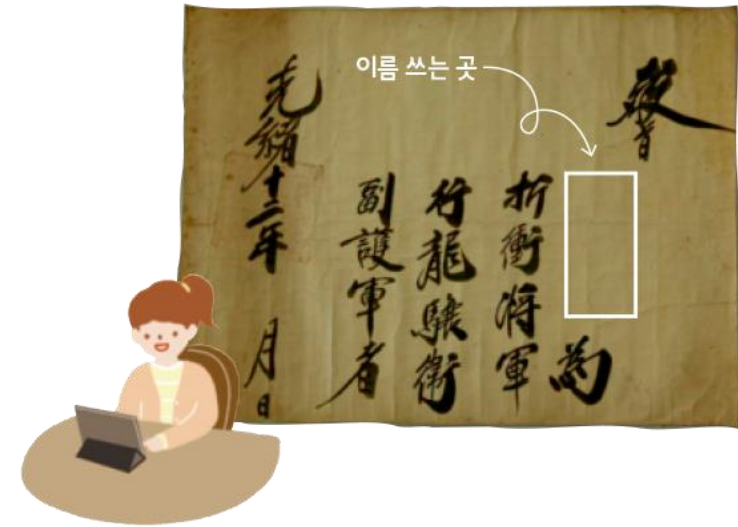 이름 쓰는 곳
敎旨
爲
折衝將軍
行龍驤衛
副護軍者
光緖十二年 月 日